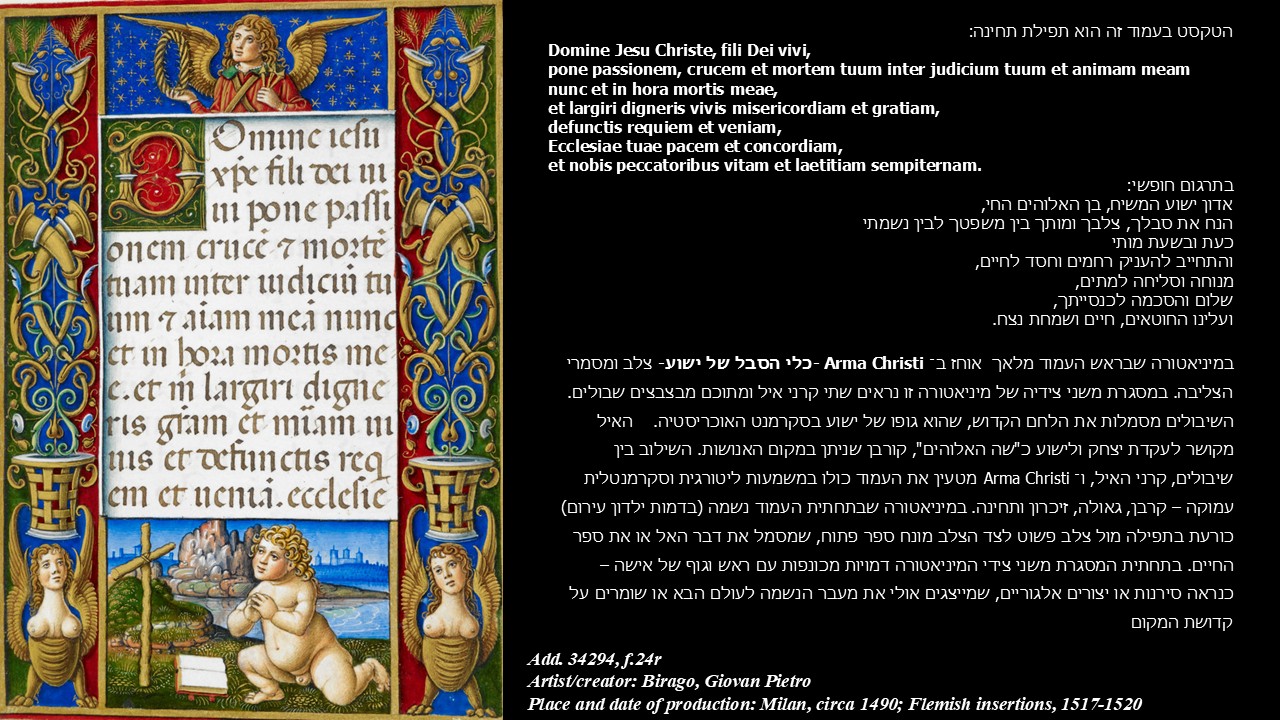 Omine iesu
xp̃e fili dei ui
ui pone passi
onem crucē ⁊ mortē
tuam inter iudiciū tu
um ⁊ aīam meā nunc
et in hora mortis me
e. et m̄ largiri digne
ris gr̄am et mīam ui
uis et defunctis req
em et ueniā. ecclesie
הטקסט בעמוד זה הוא תפילת תחינה:
Domine Jesu Christe, fili Dei vivi,
pone passionem, crucem et mortem tuum inter judicium tuum et animam meam
nunc et in hora mortis meae,
et largiri digneris vivis misericordiam et gratiam,
defunctis requiem et veniam,
Ecclesiae tuae pacem et concordiam,
et nobis peccatoribus vitam et laetitiam sempiternam.
בתרגום חופשי:
אדון ישוע המשיח, בן האלוהים החי,
הנח את סבלך, צלבך ומותך בין משפטך לבין נשמתי
כעת ובשעת מותי
והתחייב להעניק רחמים וחסד לחיים,
מנוחה וסליחה למתים,
שלום והסכמה לכנסייתך,
ועלינו החוטאים, חיים ושמחת נצח.
במיניאטורה שבראש העמוד מלאך אוחז ב־ Arma Christi -כלי הסבל של ישוע- צלב ומסמרי
הצליבה. במסגרת משני צידיה של מיניאטורה זו נראים שתי קרני איל ומתוכם מבצבצים שבולים.
השיבולים מסמלות את הלחם הקדוש, שהוא גופו של ישוע בסקרמנט האוכריסטיה. האיל
מקושר לעקדת יצחק ולישוע כ"שה האלוהים", קורבן שניתן במקום האנושות. השילוב בין
שיבולים, קרני האיל, ו־ Arma Christi מטעין את העמוד כולו במשמעות ליטורגית וסקרמנטלית
עמוקה – קרבן, גאולה, זיכרון ותחינה. במיניאטורה שבתחתית העמוד נשמה (בדמות ילדון עירום)
כורעת בתפילה מול צלב פשוט לצד הצלב מונח ספר פתוח, שמסמל את דבר האל או את ספר
החיים. בתחתית המסגרת משני צידי המיניאטורה דמויות מכונפות עם ראש וגוף של אישה –
כנראה סירנות או יצורים אלגוריים, שמייצגים אולי את מעבר הנשמה לעולם הבא או שומרים על
קדושת המקום
Add. 34294, f.24r
Artist/creator: Birago, Giovan Pietro
Place and date of production: Milan, circa 1490; Flemish insertions, 1517-1520